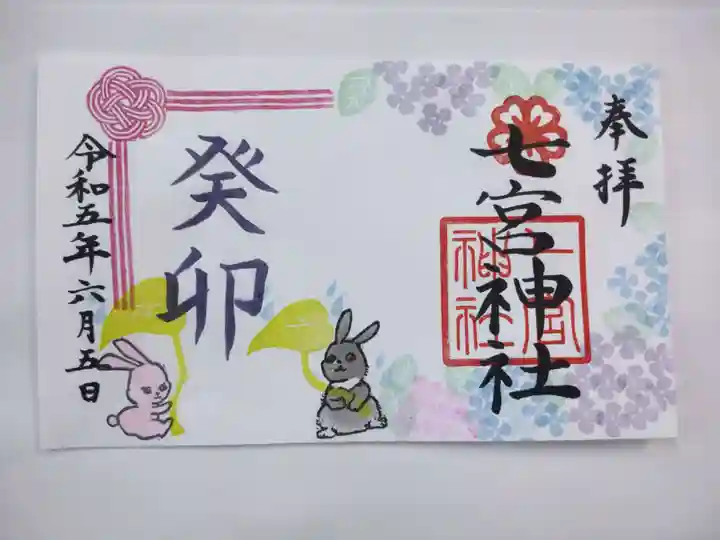 奉拝
七宮神社
七宮
神社
癸卯
令和五年六月五日